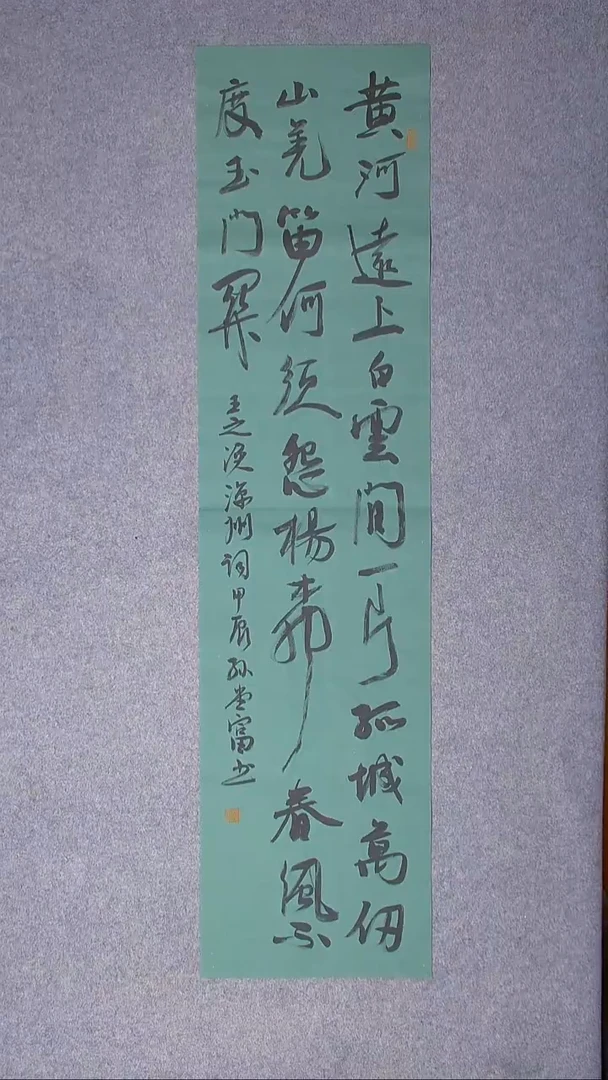 黄河遠上白雲間一片孤城萬仞
山羌笛何須怨楊柳春風不
度玉門關
王之渙涼州詞甲辰孫堂富书